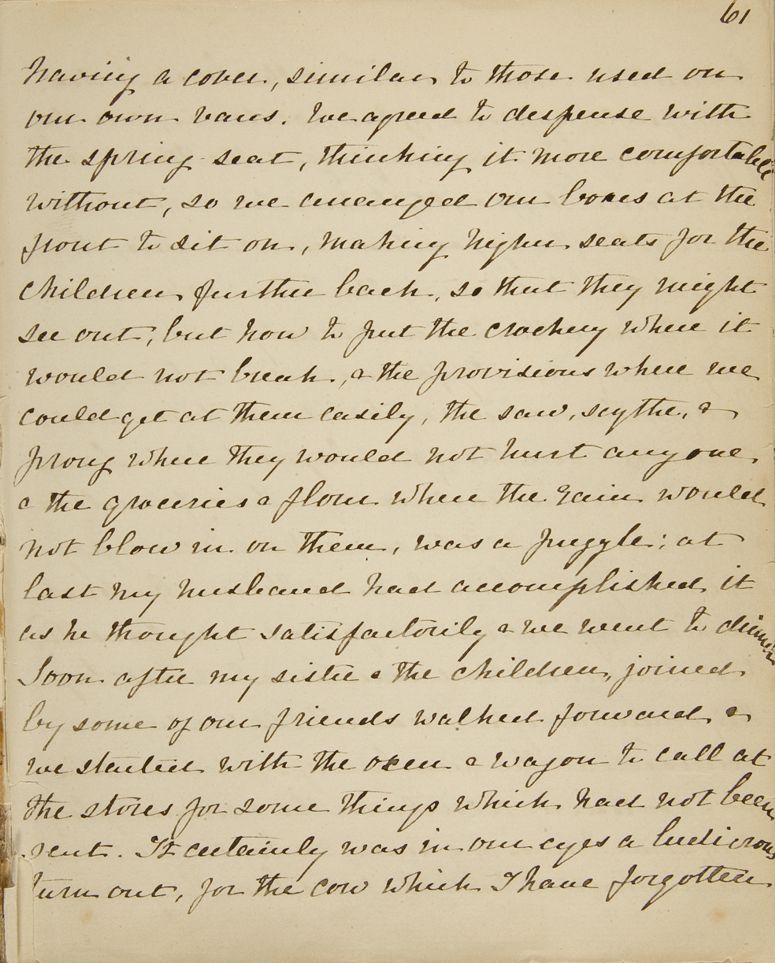 61
having a cover, similar to those used on
our own vans. We agreed to dispense with
the spring seat, thinking it more comfortable
without, so we arranged our boxes at the
front to sit on, making higher seats for the
children further back, so that they might
see out, but how to put the crockery where it
would not break, & the provisions where we
could get at them easily, the saw, scythe, &
prong where they would not hurt any one,
& the groceries & flour where the rain would
not blow in on them, was a puzzle; at
last my husband had accomplished it
as he thought satisfactorily & we went to dinner
Soon after my sister & the children, joined
by some of our friends walked forward, &
we started with the oxen & wagon to call at
the stores for some things which had not been
sent. It certainly was in our eyes a ludicrous
turn out, for the cow which I have forgotten